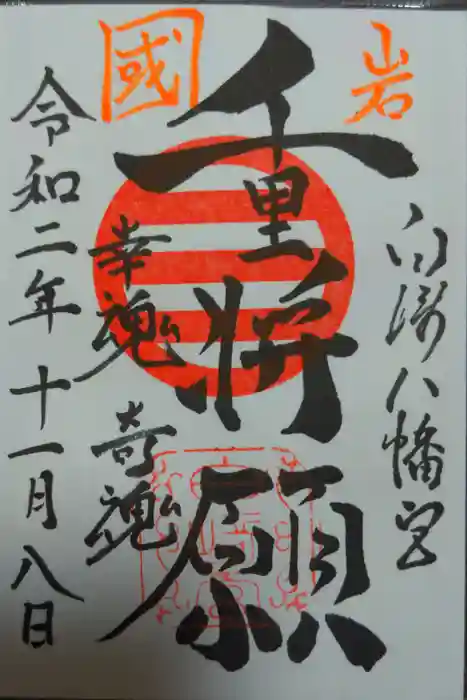 岩
白濱八幡宮
千里将願
國
幸魂
奇魂
令和二年十一月八日